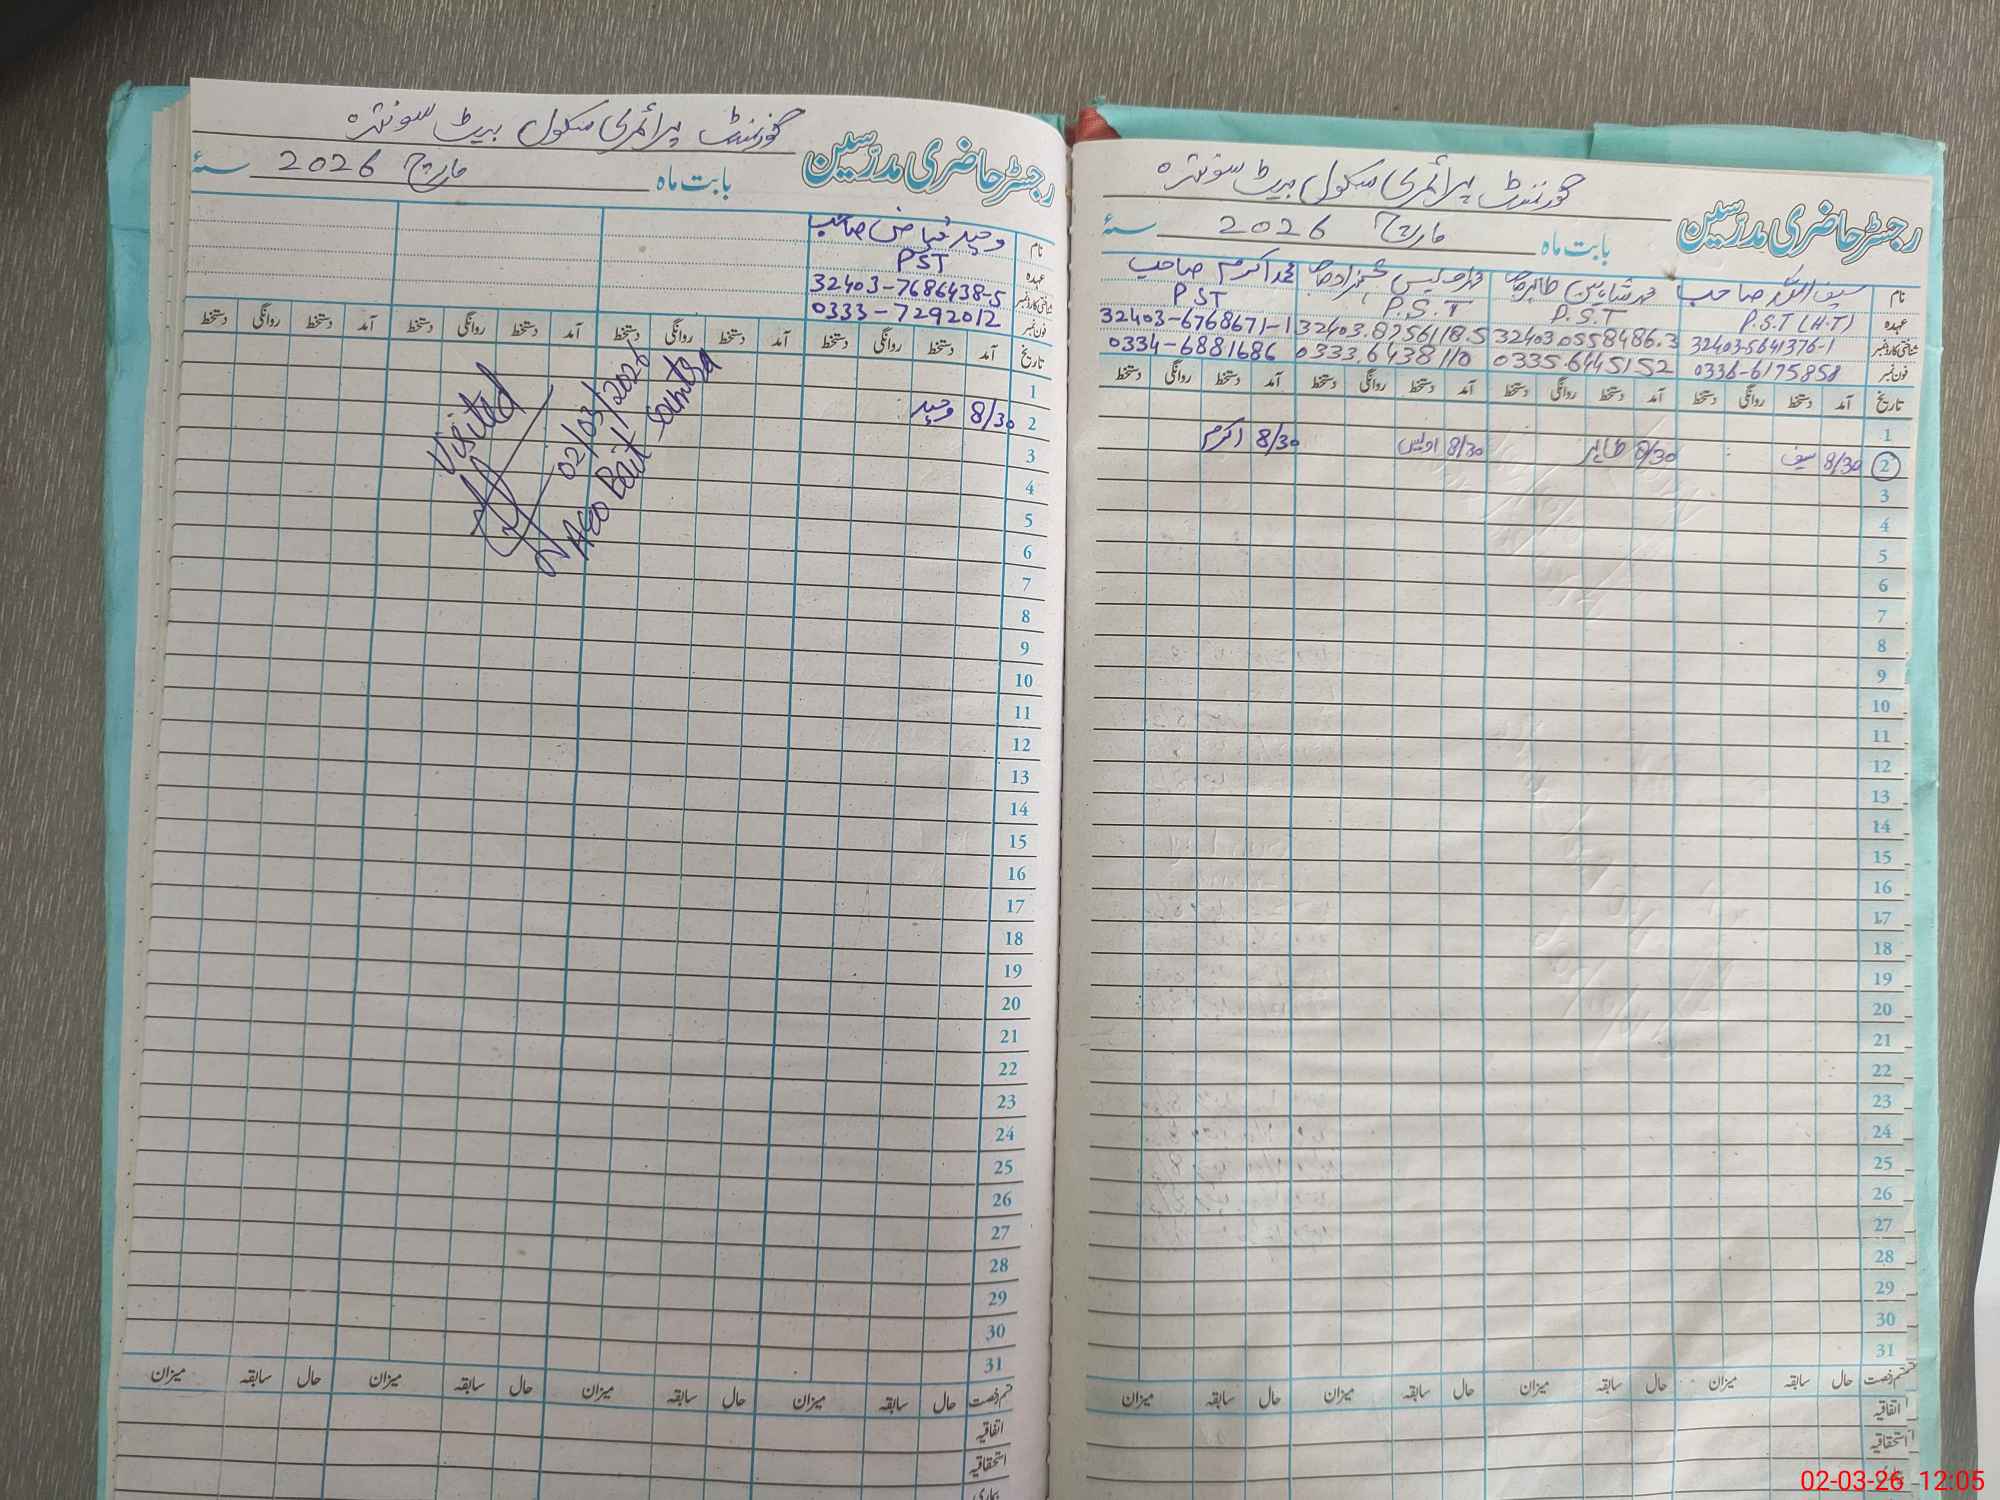 گورنمنٹ پرائمری سکول بیٹ سونترہ
رجسٹر حاضری مدرسین
بابت ماہ مارچ 2026 سنہٴ
نام سیف اللہ صاحب
عہدہ P.S.T (H.T) P.S.T P.S.T PST
شناختی کارڈ نمبر 32403-5641376-1 32403.0558486.3 32403.8256118.5 32403-6768671-1
فون نمبر 0336-6175858 0335.6445152 0333.6438110 0334-6881686
محمد اکرم صاحب
تاریخ آمد دستخط روانگی دستخط آمد دستخط روانگی دستخط آمد دستخط روانگی دستخط آمد دستخط روانگی دستخط
1
2 8/30 سیف 8/30 طاہر 8/30 اویس 8/30 اکرم
3
4
5
6
7
8
9
10
11
12
13
14
15
16
17
18
19
20
21
22
23
24
25
26
27
28
29
30
31
قسم رخصت حال سابقہ میزان حال سابقہ میزان حال سابقہ میزان حال سابقہ میزان
اتفاقیہ
استحقاقیہ
گورنمنٹ پرائمری سکول بیٹ سونترہ
رجسٹر حاضری مدرسین
بابت ماہ مارچ 2026 سنہٴ
نام وحید فیاض صاحب
عہدہ PST
شناختی کارڈ نمبر 32403-7686438-5
فون نمبر 0333-7292012
تاریخ آمد دستخط روانگی دستخط آمد دستخط روانگی دستخط آمد دستخط روانگی دستخط آمد دستخط روانگی دستخط
1
2 8/30 وحید
3
4
5
6
7
8
9
10
11
12
13
14
15
16
17
18
19
20
21
22
23
24
25
26
27
28
29
30
31
قسم رخصت حال سابقہ میزان حال سابقہ میزان حال سابقہ میزان حال سابقہ میزان
اتفاقیہ
استحقاقیہ
بیماری
Visited
02/03/2026
AEO Bait Sountra
02-03-26 12:05